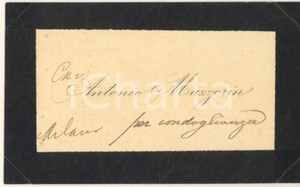 Cav.
Antonio Mazzorin
Milano per condoglianza